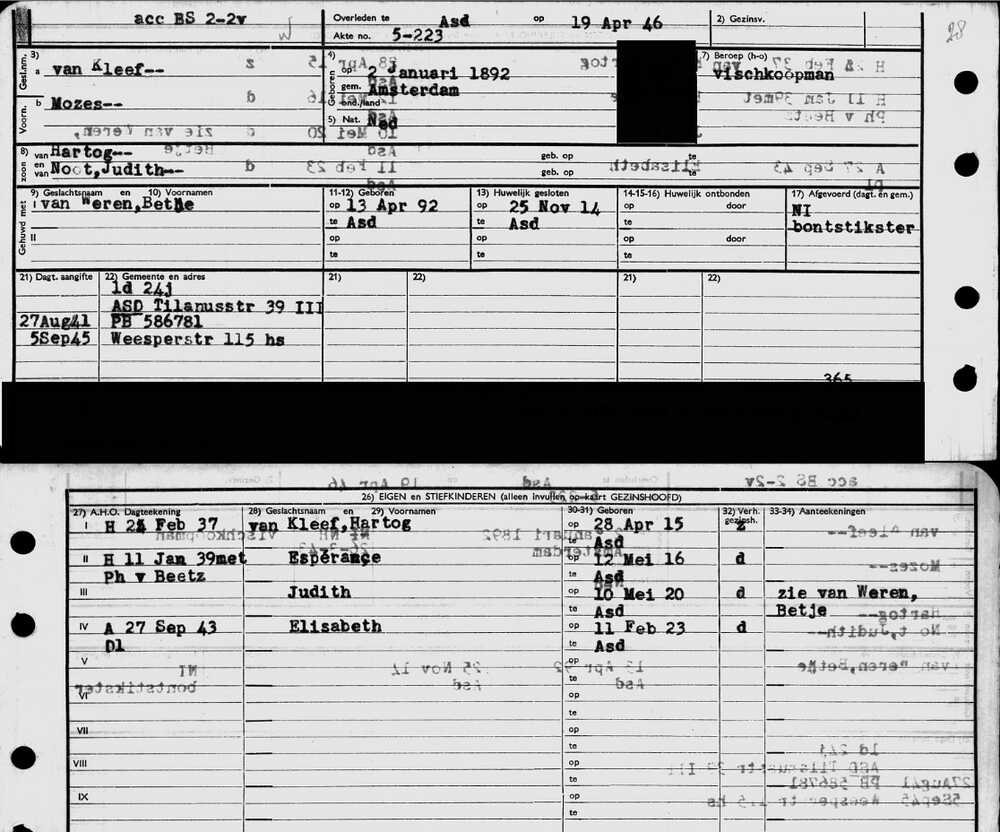 acc BS 2-2v
Overleden te Asd op 19 Apr 46
2) Gezinsv.
28
Akte no. 5-223
Gesl.nm. 3) a van Kleef--
4) Geboren op 2 Januari 1892
7) Beroep (h-o)
vischkoopman
gem. Amsterdam
Voorn. b Mozes--
prov./land
5) Nat. Ned
8) zoon van Hartog--
geb. op te
en van Noot,Judith--
geb. op te
9) Geslachtsnaam en 10) Voornamen
11-12) Geboren
13) Huwelijk gesloten
14-15-16) Huwelijk ontbonden
17) Afgevoerd (dagt. en gem.)
Gehuwd met I van Weren,Betje
op 13 Apr 92
op 25 Nov 14
op door
NI
te Asd
te Asd
te
bontstikster
II
op
op
op door
te
te
te
21) Dagt. aangifte
22) Gemeente en adres
21)
22)
21)
22)
ld 24j
ASD Tilanusstr 39 III
27Aug41 PB 586781
5Sep45 Weesperstr 115 hs
365
26) EIGEN en STIEFKINDEREN (alleen invullen op kaart GEZINSHOOFD)
27) A.H.O. Dagteekening
28) Geslachtsnaam en 29) Voornamen
30-31) Geboren
32) Verh. t. gezinsh.
33-34) Aanteekeningen
I H 24 Feb 37 van Kleef,Hartog op 28 Apr 15 z
te Asd
II H 11 Jan 39met Espérance op 12 Mei 16 d
Ph v Beetz te Asd
III Judith op 10 Mei 20 d zie van Weren,
te Asd Betje
IV A 27 Sep 43 Elisabeth op 11 Feb 23 d
Dl te Asd
V op
te
VI op
te
VII op
te
VIII op
te
IX op
te